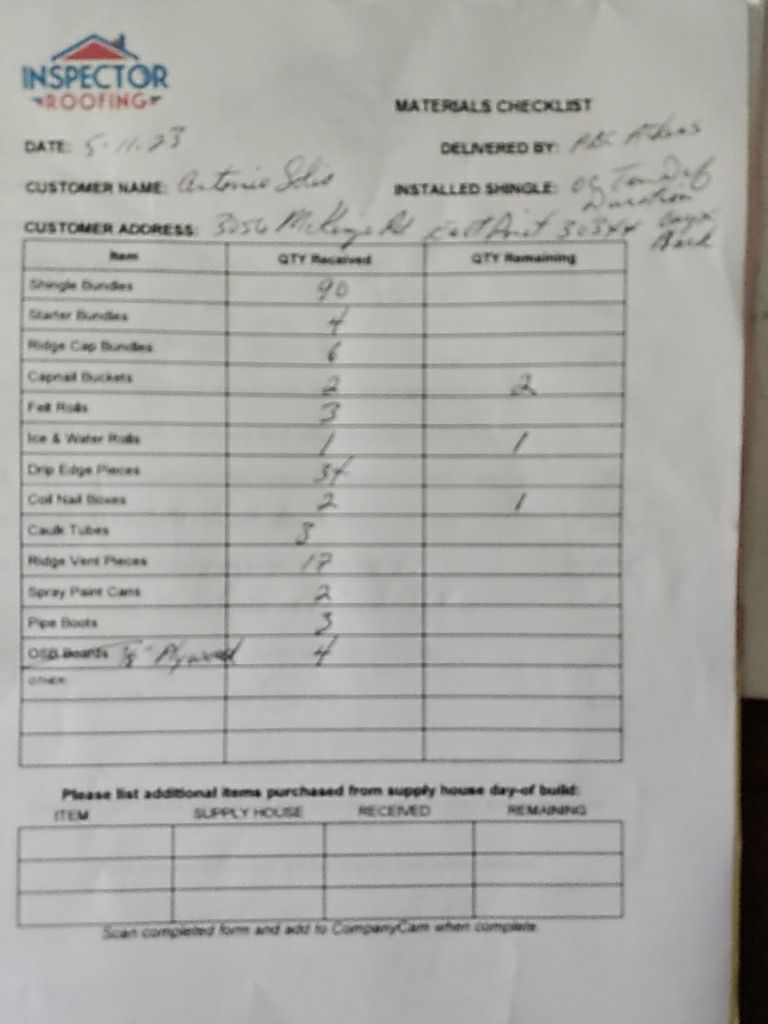 INSPECTOR
ROOFING
MATERIALS CHECKLIST
DATE: 5-11-23 DELIVERED BY: ABC
CUSTOMER NAME: Antonio Solis INSTALLED SHINGLE: OC TruDef
Duration
CUSTOMER ADDRESS: 3056 Rd East Point 30344 Onyx
Black
Item QTY Received QTY Remaining
Shingle Bundles 90
Starter Bundles 4
Ridge Cap Bundles 6
Capnail Buckets 2 2
Felt Rolls 3
Ice & Water Rolls 1 1
Drip Edge Pieces 34
Coil Nail Boxes 2 1
Caulk Tubes 3
Ridge Vent Pieces 17
Spray Paint Cans 2
Pipe Boots 3
OSB Boards Plywood 4
OTHER:
Please list additional items purchased from supply house day-of build:
ITEM SUPPLY HOUSE RECEIVED REMAINING
Scan completed form and add to CompanyCam when complete